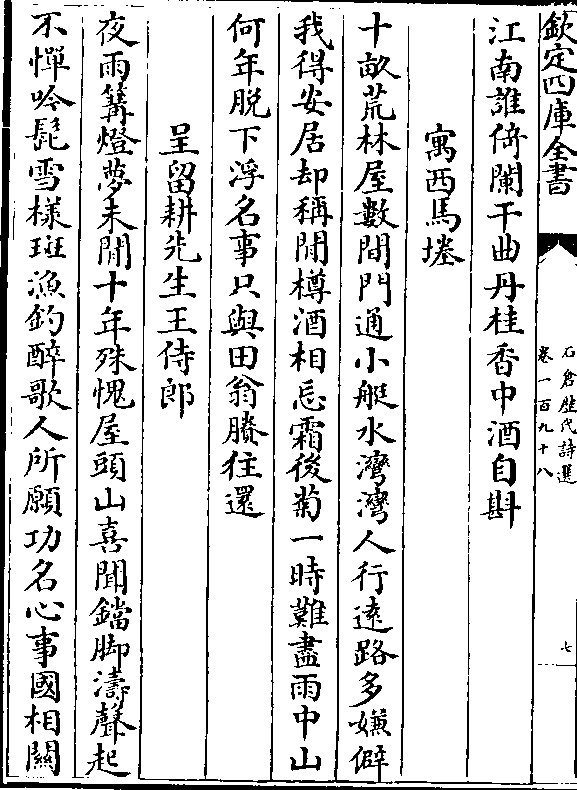 欽定四庫全書
石倉歷代詩選
卷一百九十八
七
江南誰倚闌干曲丹桂香中酒自斟
寓西馬塍
十畝荒林屋數間門通小艇水灣灣人行逺路多嫌僻
我得安居却稱閒樽酒相忘霜後菊一時難盡雨中山
何年脱下浮名事只與田翁賸往還
呈留耕先生王侍郎
夜雨篝燈夢未閒十年殊愧屋頭山喜聞鐺脚濤聲起
不憚吟髭雪様斑漁釣醉歌人所願功名心事國相關